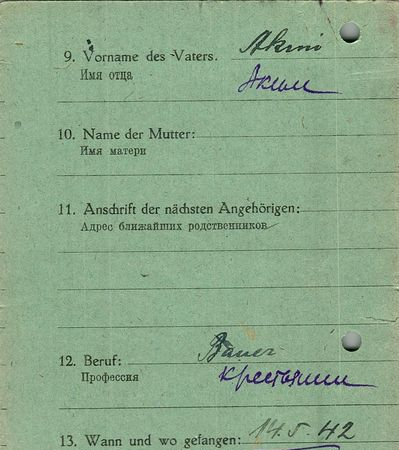 9. Vorname des Vaters. Akim
Имя отца Аким
10. Name der Mutter:
Имя матери
11. Anschrift der nächsten Angehörigen:
Адрес ближайших родственников
12. Beruf: Bauer
Профессия крестьянин
13. Wann und wo gefangen: 14.5.42